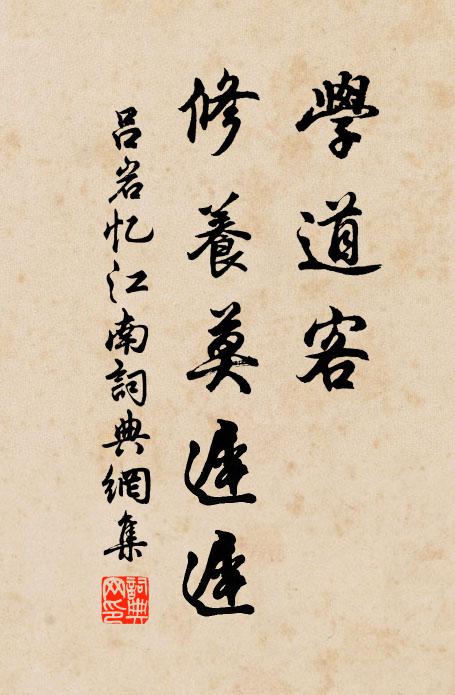 學道客
修養莫遲遲
吕岩忆江南詞典網集
詞典網印